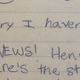 ry I haven
NEWS! Hen
ne's the s